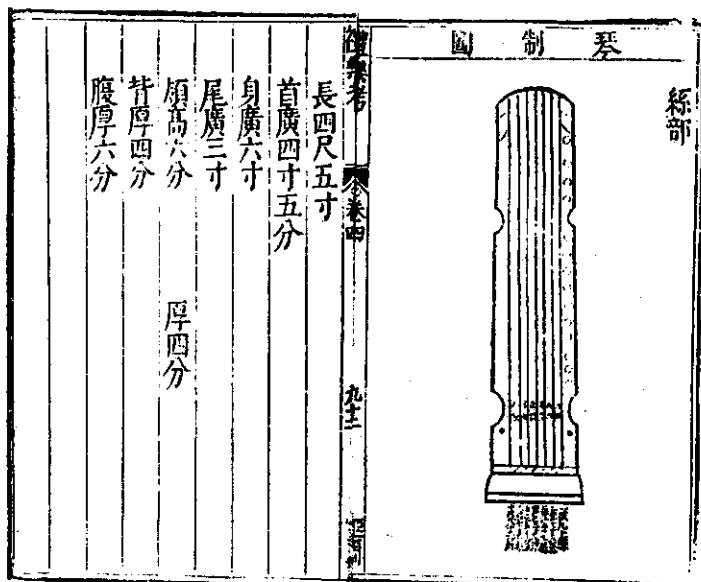 琴制圖
絲部
禮樂考
卷四
九十二
長四尺五寸
首廣四寸五分
身廣六寸
尾廣三寸
高六分 厚四分
背厚四分
腹厚六分